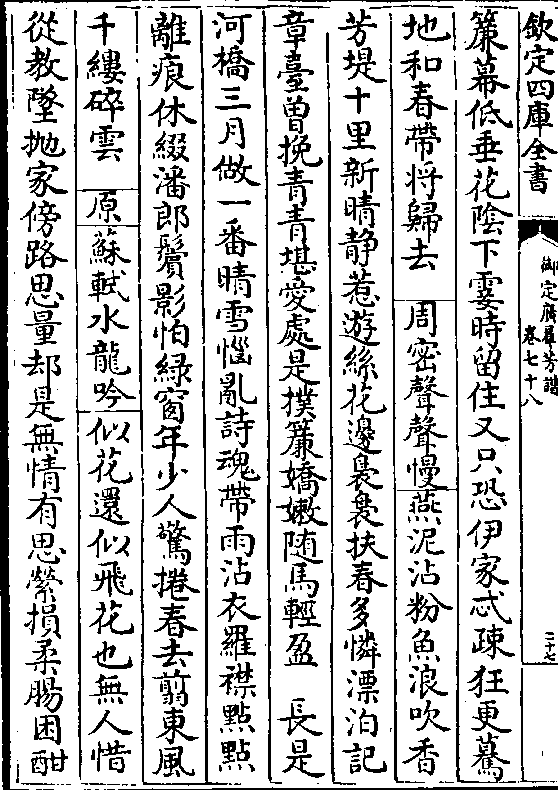 欽定四庫全書
御定廣羣芳譜
卷七十八
三十七
簾幕低垂花陰下霎時留住又只恐伊家忒疎狂更驀
地和春帶將歸去　周密聲聲慢燕泥沾粉魚浪吹香
芳堤十里新晴静惹遊絲花邊裊裊扶春多憐漂泊記
章臺曽挽青青堪愛處是撲簾嬌嫩随馬輕盈　長是
河橋三月做一番晴雪惱亂詩魂帶雨沾衣羅襟㸃㸃
離痕休綴潘郎鬢影怕緑窗年少人驚捲春去翦東風
千縷碎雲　原蘇軾水龍吟似花還似飛花也無人惜
從教墜抛家傍路思量却是無情有思縈損柔腸困酣